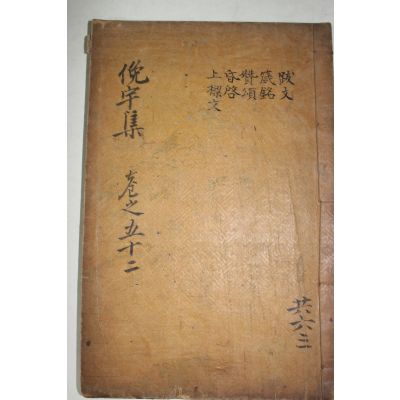 共六三
跋文
箴銘
贊頌
昏啓
上樑文
俛宇集
卷之五十二